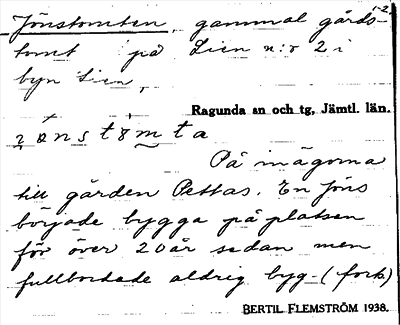 Jönstomten, gammal gårds- 1-2
tomt på Lien n:o 2 i
byn Lien,
Ragunda sn och tg, Jämtl. län.
På inägorna
till gården Pettas. En Jöns
började bygga på platsen
för över 20 år sedan men
fullbordade aldrig byg- (forts)
BERTIL FLEMSTRÖM 1938.